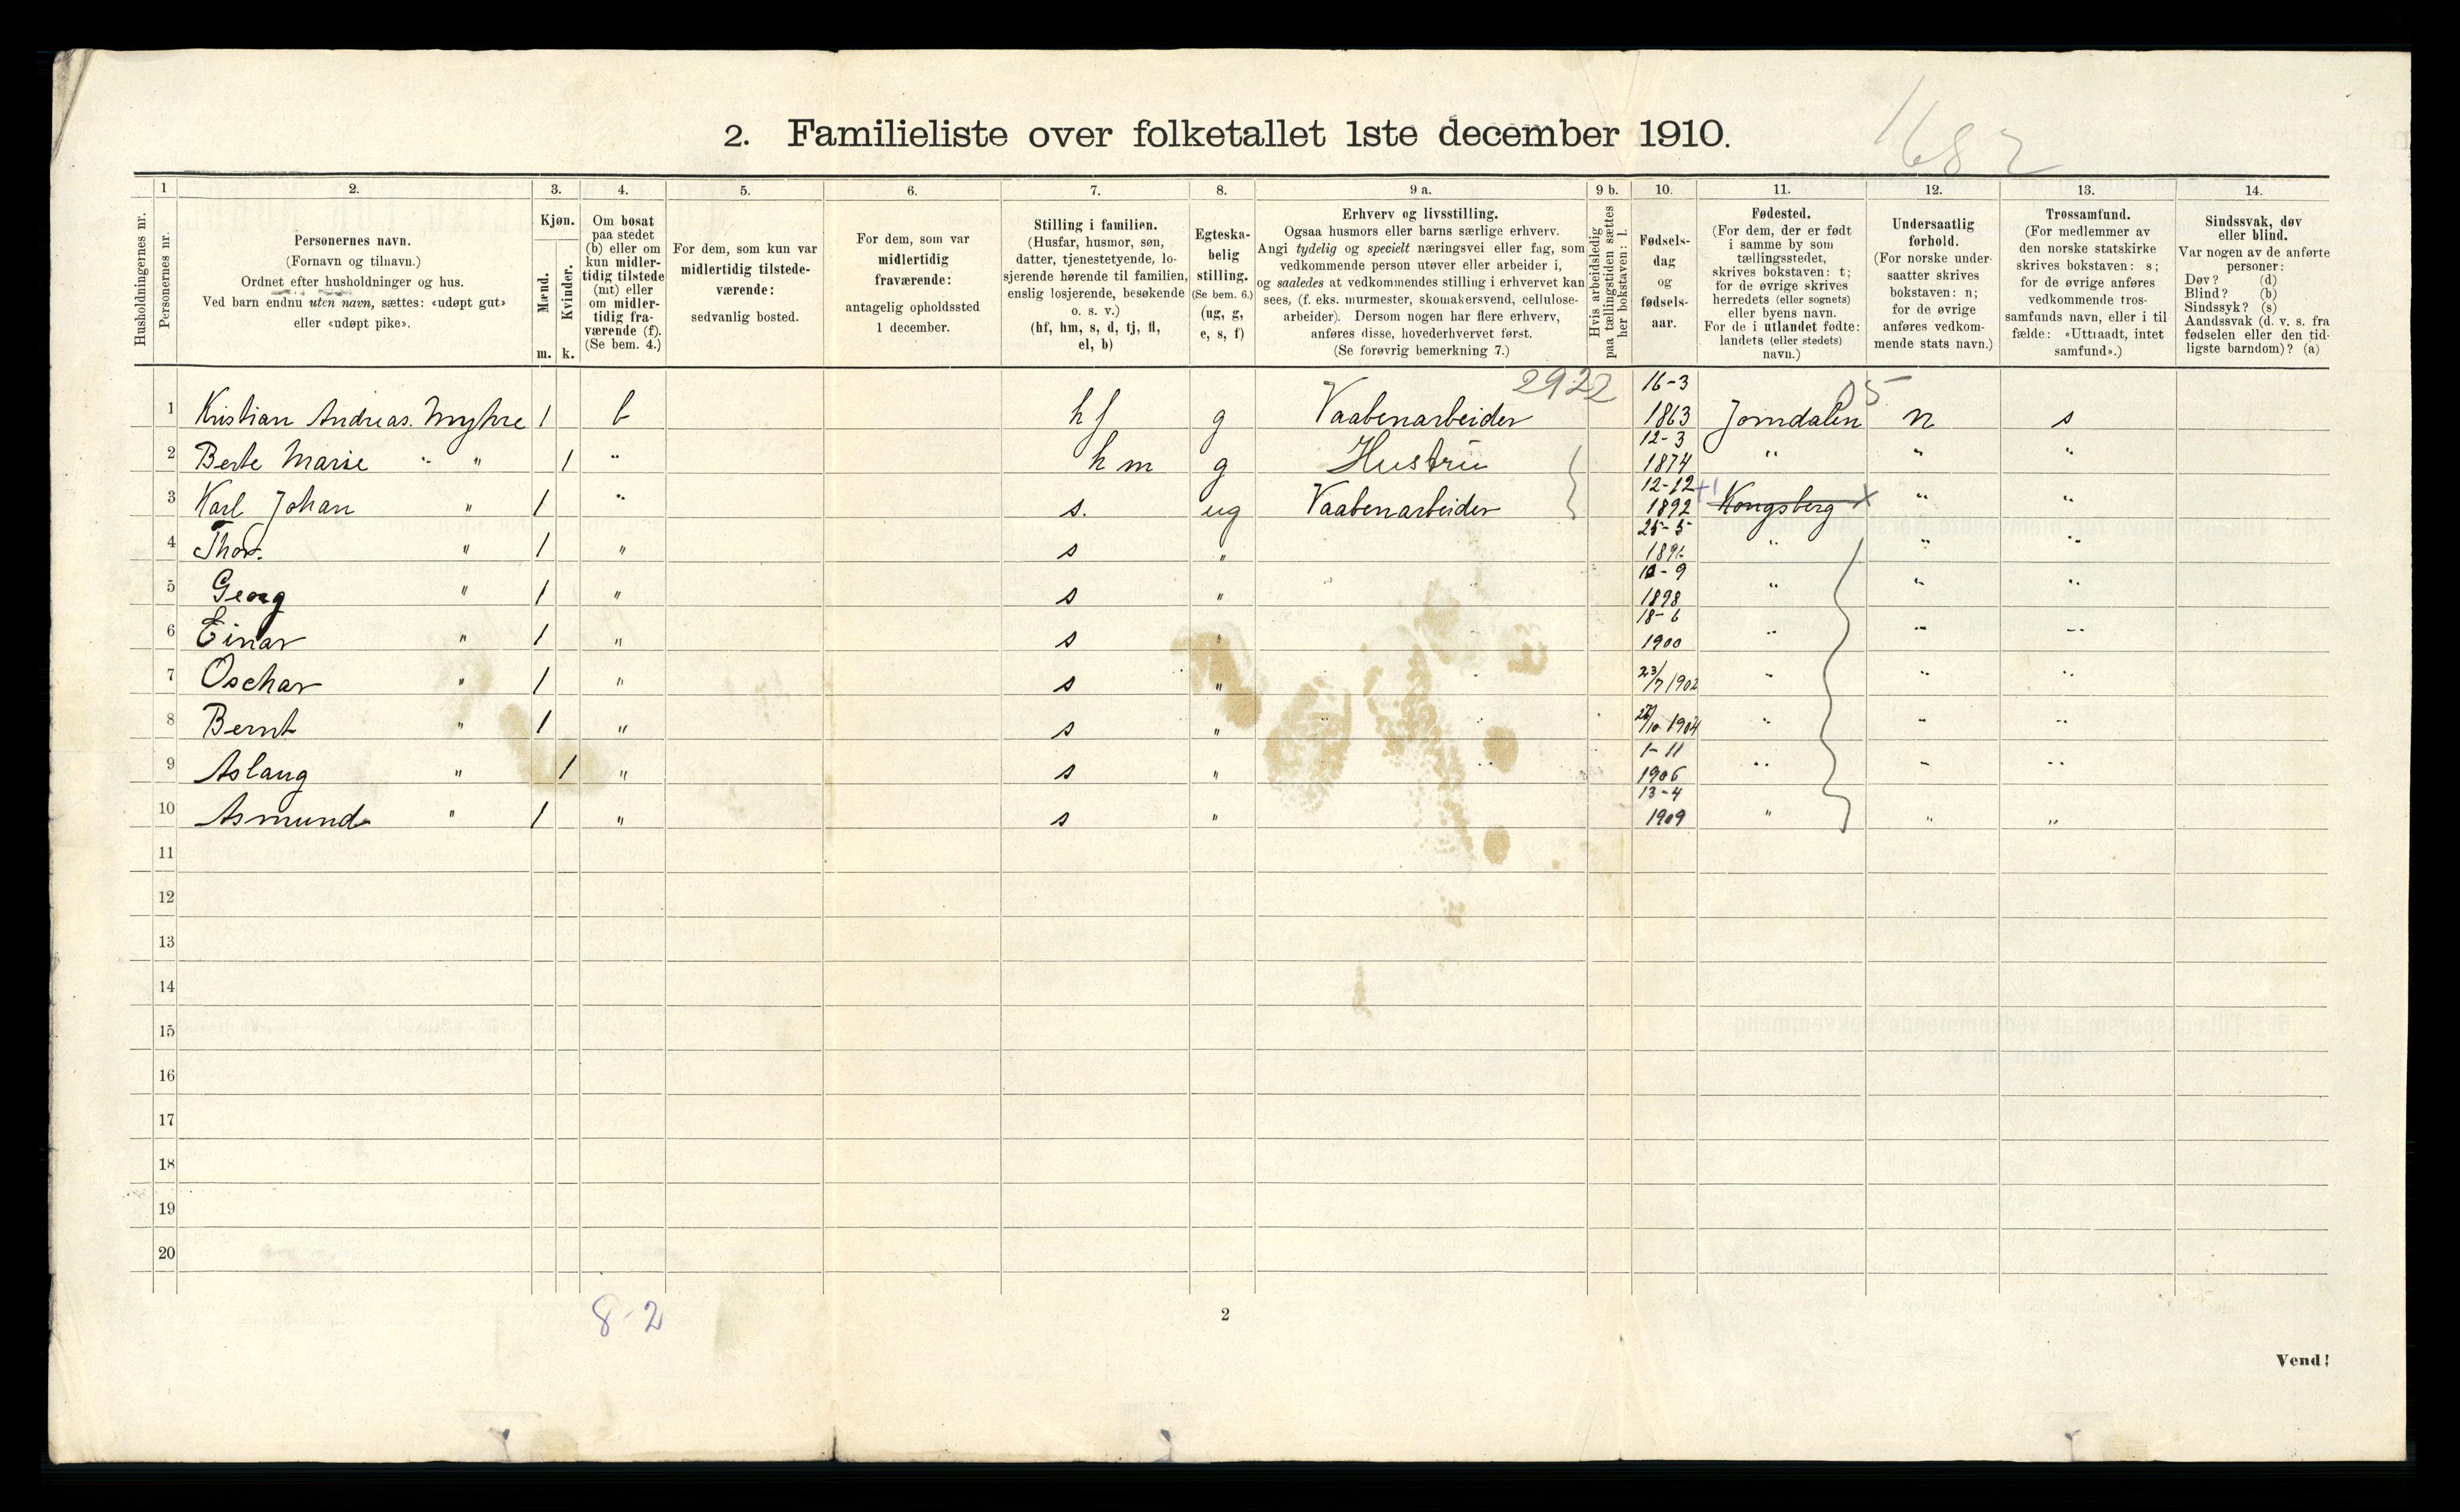 1682
2. Familieliste over folketallet 1ste december 1910.
1 2. 3. 4. 5. 6. 7. 8. 9 a. 9 b. 10. 11. 12. 13. 14.
Husholdningernes nr.
Personernes nr.
Personernes navn.
(Fornavn og tilnavn.)
Ordnet efter husholdninger og hus.
Ved barn endnu uten navn, sættes: «udøpt gut»
eller «udøpt pike».
Kjøn.
Mænd.
Kvinder.
m. k.
Om bosat
paa stedet
(b) eller om
kun midler-
tidig tilstede
(mt) eller
om midler-
tidig fra-
værende (f).
(Se bem. 4.)
For dem, som kun var
midlertidig tilstede-
værende:
sedvanlig bosted.
For dem, som var
midlertidig
fraværende:
antagelig opholdssted
1 december.
Stilling i familien.
(Husfar, husmor, søn,
datter, tjenestetyende, lo-
sjerende hørende til familien,
enslig losjerende, besøkende
o. s. v.)
(hf, hm, s, d, tj, fl,
el, b)
Egteska-
belig
stilling.
(Se bem. 6.)
(ug, g,
e, s, f)
Erhverv og livsstilling.
Ogsaa husmors eller barns særlige erhverv.
Angi tydelig og specielt næringsvei eller fag, som
vedkommende person utøver eller arbeider i,
og saaledes at vedkommendes stilling i erhvervet kan
sees, (f. eks. murmester, skomakersvend, cellulose-
arbeider). Dersom nogen har flere erhverv,
anføres disse, hovederhvervet først.
(Se forøvrig bemerkning 7.)
Hvis arbeidsledig
paa tællingstiden sættes
her bokstaven: l.
Fødsels-
dag
og
fødsels-
aar.
Fødested.
(For dem, der er født
i samme by som
tællingsstedet,
skrives bokstaven: t;
for de øvrige skrives
herredets (eller sognets)
eller byens navn.
For de i utlandet fødte:
landets (eller stedets)
navn.)
Undersaatlig
forhold.
(For norske under-
saatter skrives
bokstaven: n;
for de øvrige
anføres vedkom-
mende stats navn.)
Trossamfund.
(For medlemmer av
den norske statskirke
skrives bokstaven: s;
for de øvrige anføres
vedkommende tros-
samfunds navn, eller i til
fælde: «Uttraadt, intet
samfund».)
Sindssvak, døv
eller blind.
Var nogen av de anførte
personer:
Døv? (d)
Blind? (b)
Sindssyk? (s)
Aandssvak (d. v. s. fra
fødselen eller den tid-
ligste barndom)? (a)
2922 05
1 Kristian Andreas. Myhre 1 b hf g Vaabenarbeider 16-3 1863 Jondalen n s
2 Berte Marie " " 1 " hm g Hustru 12-3 1874 " " "
3 Karl Johan " 1 " s. ug Vaabenarbeider 12-12 1892 +1 Kongsberg x " "
4 Thor. " 1 " s " 25-5 " " "
5 Georg " 1 " s " -9 1898 " " "
6 Einar " 1 " s " 18-6 1900 " " "
7 Oschar " 1 " s " 23/7 1902 " " "
8 Bernt " 1 " s " /10 1904 " " "
9 Aslaug " 1 " s " 1-11 1906 " " "
10 Asmund " 1 " s " 13-4 1909 " " "
11
12
13
14
15
16
17
18
19
20
8-2
2
Vend!